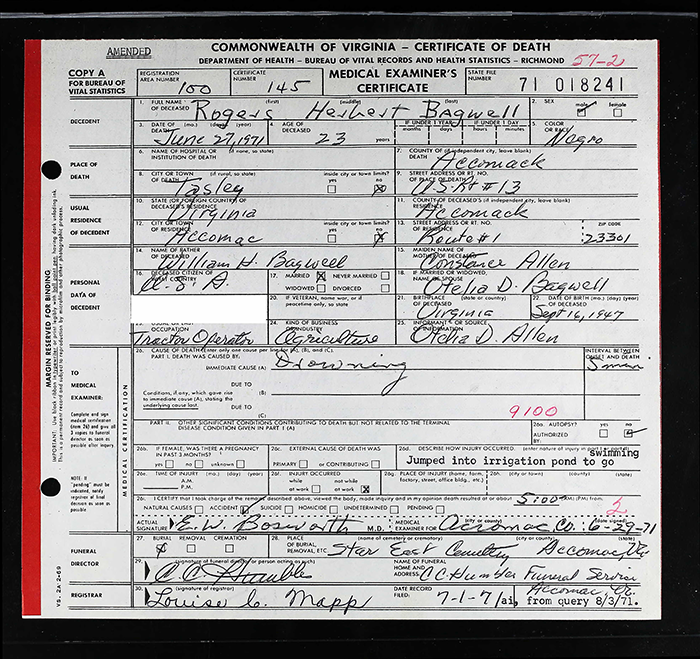 COMMONWEALTH OF VIRGINIA – CERTIFICATE OF DEATH
AMENDED
DEPARTMENT OF HEALTH – BUREAU OF VITAL RECORDS AND HEALTH STATISTICS – RICHMOND 57-2
COPY A
FOR BUREAU OF
VITAL STATISTICS
REGISTRATION
AREA NUMBER 100
CERTIFICATE
NUMBER 145
MEDICAL EXAMINER'S
CERTIFICATE
STATE FILE
NUMBER 71 018241
DECEDENT
1. FULL NAME OF DECEASED (first) (middle) (last)
Rogers Herbert Bagwell
2. SEX male female
3. DATE OF DEATH (mo.) (day) (year)
June 27, 1971
4. AGE OF DECEASED 23 years
IF UNDER 1 YEAR months days
IF UNDER 1 DAY hours minutes
5. COLOR OR RACE Negro
PLACE OF
DEATH
6. NAME OF HOSPITAL OR INSTITUTION OF DEATH (if none, so state)
7. COUNTY OF DEATH (if independent city, leave blank)
Accomack
8. CITY OR TOWN OF DEATH (if rural, so state) inside city or town limits? yes no
Tasley
9. STREET ADDRESS OR RT. NO. OF PLACE OF DEATH
U.S. Rt # 13
USUAL
RESIDENCE
OF DECEDENT
10. STATE (OR FOREIGN COUNTRY) OF DECEASED'S RESIDENCE
Virginia
11. COUNTY OF DECEASED'S RESIDENCE (if independent city, leave blank)
Accomack
12. CITY OR TOWN OF RESIDENCE inside city or town limits? yes no
Accomac
13. STREET ADDRESS OR RT. NO. OF RESIDENCE ZIP CODE
Route #1 23301
PERSONAL
DATA OF
DECEDENT
14. NAME OF FATHER OF DECEASED
William H. Bagwell
15. MAIDEN NAME OF MOTHER OF DECEASED
Constance Allen
16. DECEASED CITIZEN OF WHAT COUNTRY
U. S. A.
17. MARRIED NEVER MARRIED
WIDOWED DIVORCED
18. IF MARRIED OR WIDOWED, NAME OF SPOUSE
Otelia D. Bagwell
20. IF VETERAN, name war, or if
peacetime only, so state
21. BIRTHPLACE OF DECEASED (state or country)
Virginia
22. DATE OF BIRTH (mo.) (day) (year) OF DECEASED
Sept 16, 1947
23. USUAL OR LAST OCCUPATION
Tractor Operator
24. KIND OF BUSINESS OR INDUSTRY
Agriculture
25. INFORMANT OR SOURCE OF INFORMATION
Otelia D. Allen
MARGIN RESERVED FOR BINDING
TO
MEDICAL
EXAMINER:
Complete and sign
medical certification
(item 26) and give all
3 copies to funeral
director as soon as
possible after inquiry.
NOTE: If
"pending" must be
indicated, satisfy
registrar of final
decision as soon as
possible
MEDICAL CERTIFICATION
26. CAUSE OF DEATH (enter only one cause per line for (A), (B), and (C).
PART I. DEATH WAS CAUSED BY:
IMMEDIATE CAUSE (A) Drowning
INTERVAL BETWEEN
ONSET AND DEATH
5 min
DUE TO
Conditions, if any, which gave
rise to immediate cause (A), stating
the underlying cause last. (B)
DUE TO
(C) 9100
PART II. OTHER SIGNIFICANT CONDITIONS CONTRIBUTING TO DEATH BUT NOT RELATED TO THE TERMINAL
DISEASE CONDITION GIVEN IN PART I (A)
26a. AUTOPSY? yes no
AUTHORIZED BY:
26b. IF FEMALE, WAS THERE A PREGNANCY
IN PAST 3 MONTHS?
yes no unknown
26c. EXTERNAL CAUSE OF DEATH WAS
PRIMARY or CONTRIBUTING
26d. DESCRIBE HOW INJURY OCCURRED. (enter nature of injury in part I or part II)
swimming
Jumped into irrigation pond to go
26e. TIME OF INJURY (mo.) (day) (year)
A.M.
P.M.
26f. INJURY OCCURRED
while at work not while at work
26g. PLACE OF INJURY (home, farm, factory, street, office bldg., etc.) (city or town) (county) (state)
26h. I CERTIFY that I took charge of the remains described above, viewed the body, made inquiry and in my opinion death resulted at or about 5:00 AM (PM) from:
NATURAL CAUSES ACCIDENT SUICIDE HOMICIDE UNDETERMINED PENDING
2
ACTUAL
SIGNATURE E. W. Bosworth M.D. MEDICAL
EXAMINER FOR (city or county) Accomac Co. (date signed) 6-29-71
FUNERAL
DIRECTOR
27. BURIAL REMOVAL CREMATION
28. PLACE OF BURIAL, REMOVAL, ETC. (name of cemetery or crematory) (city or county) (state)
Star East Cemetery Accomac, Va.
29. (signature of funeral director or person acting as such)
C.C. Humbles
NAME OF FUNERAL HOME AND ADDRESS
C C Humbles Funeral Service
Accomac, Va.
REGISTRAR
30. (signature of registrar)
Louise C. Mapp
DATE RECORD
FILED: 7-1-71
from query 8/3/71.
VS. 2A 2-69